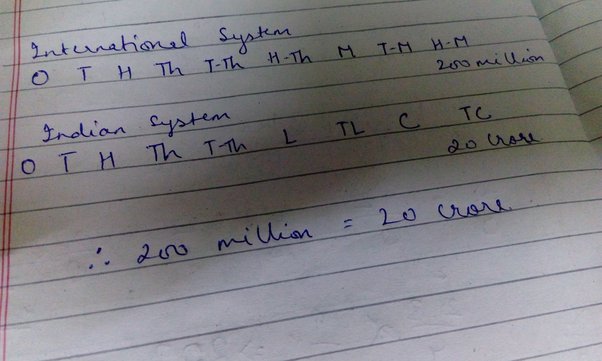 International System
O T H Th T-Th H-Th M T-M H-M
200 million
Indian System
O T H Th T-Th L TL C TC
20 Crore
∴ 200 million = 20 crore